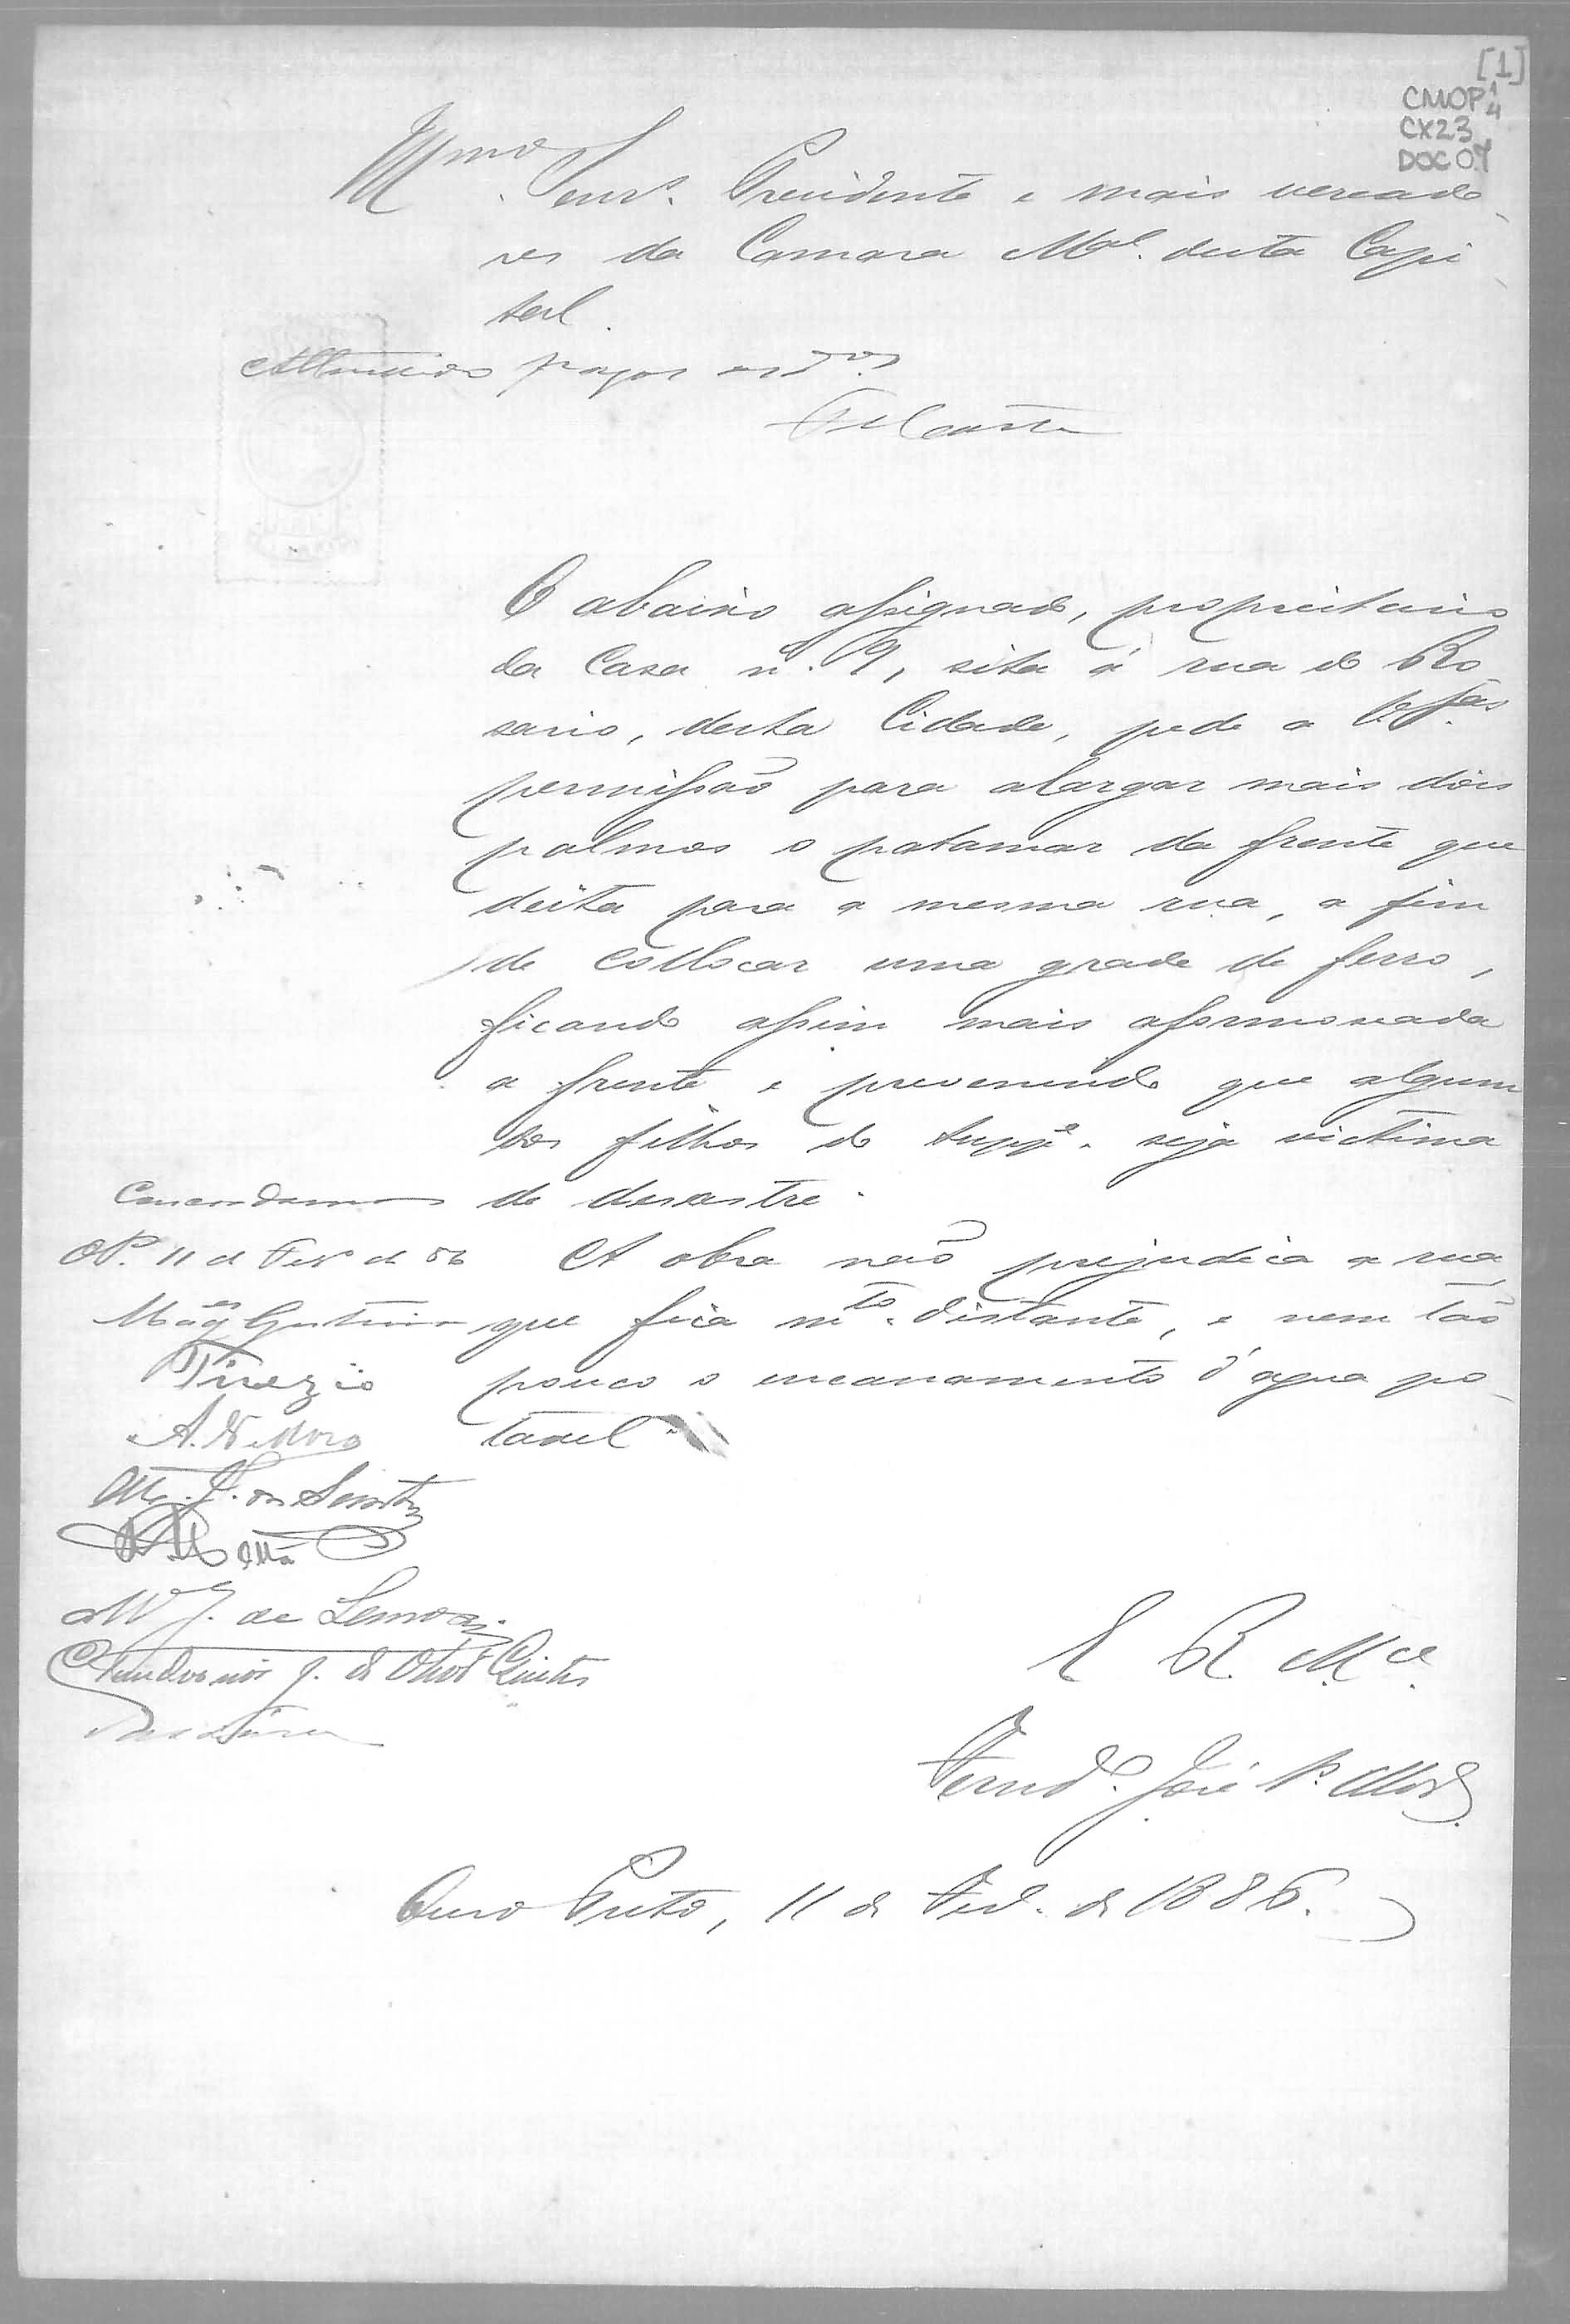 [1]
CMOP 1/4
CX23
DOC 07
Illmos. Senrs. Presidente e mais vereado
res da Camara Mal. desta Capi
tal.
pagos os dros
O abaixo assignado, proprietario
da Casa n. 9, sita á rua do Ro
sario, desta Cidade, pede a V.Sas.
permissão para alargar mais dois
palmos o patamar da frente que
deita para a mesma rua, a fim
de collocar uma grade de ferro,
ficando assim mais aformoseada
a frente e prevenindo que algum
dos filhos do Suppe. seja victima
de desastre.
A obra não prejudica a rua,
que fica mto. distante, e nem tão
pouco o encanamento d'agua po
tavel.
Concordamos
OP. 11 de Fevo de 86
Tirezio
M.el J. de Lemos
E. R. Mce.
Fernd.o José
Ouro Preto, 11 de Fev. de 1886.